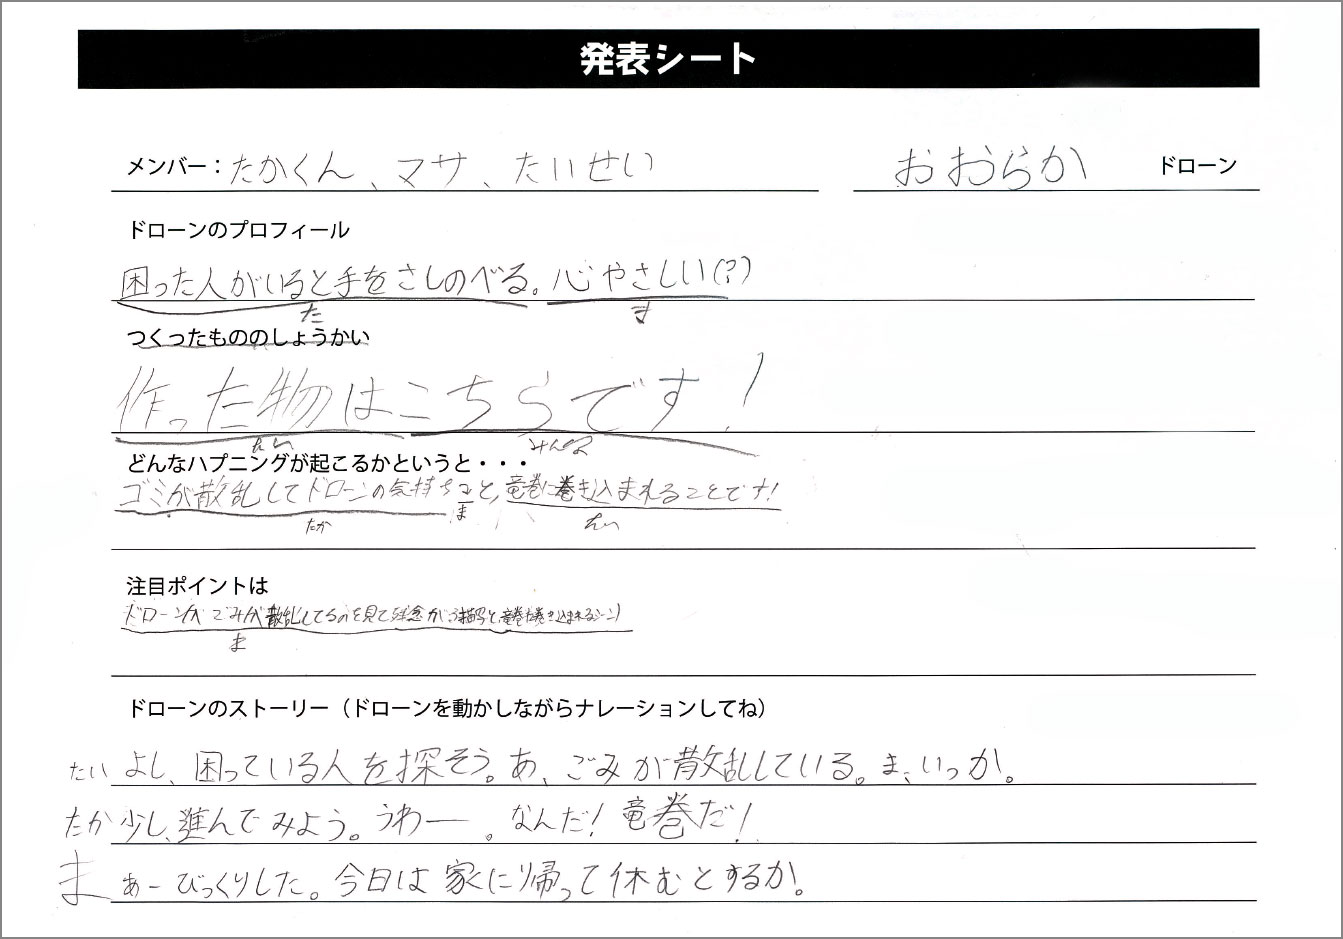 発表シート
メンバー：たかくん、マサ、たいせい おおらか ドローン
ドローンのプロフィール
困った人がいると手をさしのべる。心やさしい(?)
た ま
つくったもののしょうかい
作った物はこちらです！
たい みんな
どんなハプニングが起こるかというと・・・
ゴミが散乱してドローンの気持ち と、竜巻に巻き込まれることです！
たか ま たい
注目ポイントは
ドローンが ごみが散乱してるのを見て残念がる描写と、竜巻に巻き込まれるシーン！
ま
ドローンのストーリー（ドローンを動かしながらナレーションしてね）
たい よし、困っている人を探そう。あ、ごみが散乱している。ま、いっか。
たか 少し、進んでみよう。うわー。なんだ！竜巻だ！
ま あーびっくりした。今日は家に帰って休むとするか。